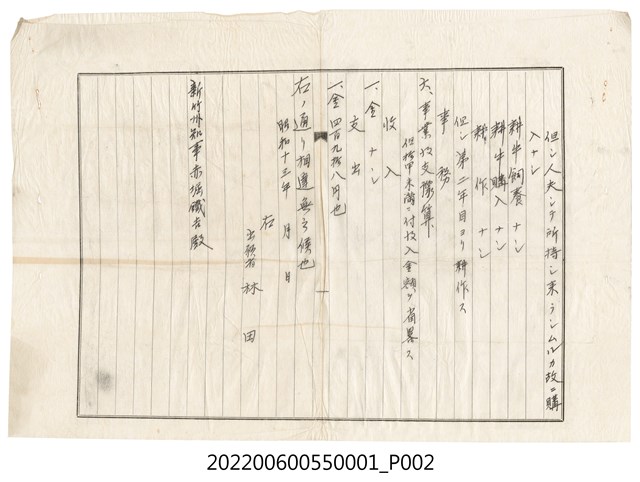 但シ人夫ヲシテ所持シ来ラシムルカ故ニ購
入ナシ
耕牛飼養ナシ
耕牛購入ナシ
耕作ナシ
但シ第二年目ヨリ耕作ス
事務
六、事業收支豫算
但拾甲未満ニ付收入金額ヲ省畧ス
收入
一、金ナシ
支出
一、金四百九拾八円也
右ノ通リ相違無之候也
昭和十三年 月 日
右
出願者 林田
新竹州知事赤堀鐵吉殿
202200600550001_P002